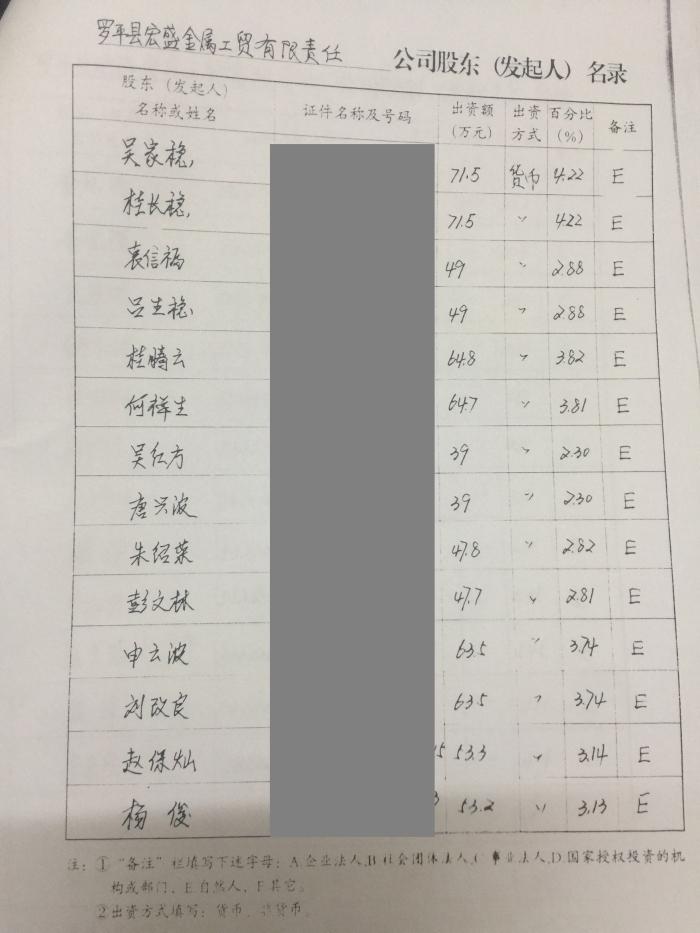 罗平县宏盛金属工贸有限责任 公司股东（发起人）名录
股东（发起人）名称或姓名 证件名称及号码 出资额（万元） 出资方式 百分比（%） 备注
吴家稳 71.5 货币 4.22 E
桂长稳 71.5 〃 4.22 E
袁信福 49 〃 2.88 E
吕生稳 49 〃 2.88 E
桂腾云 64.8 〃 3.82 E
何祥生 64.7 〃 3.81 E
吴红方 39 〃 2.30 E
唐兴波 39 〃 2.30 E
朱绍荣 47.8 〃 2.82 E
彭文林 47.7 〃 2.81 E
申云波 63.5 〃 3.74 E
刘改良 63.5 〃 3.74 E
赵保灿 53.3 〃 3.14 E
杨俊 53.2 〃 3.13 E
注：①“备注”栏填写下述字母：A.企业法人,B.社会团体法人,C.事业法人,D.国家授权投资的机
构或部门、E.自然人、F.其它。
②出资方式填写：货币、非货币。